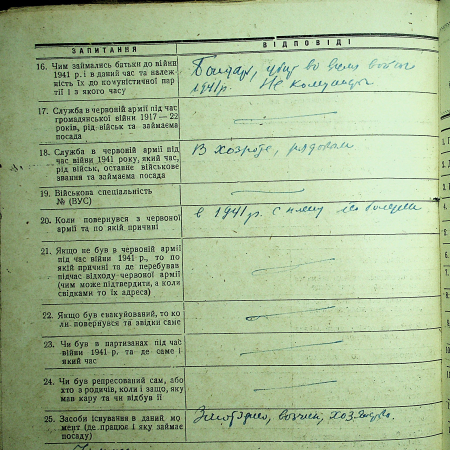 ЗАПИТАННЯ ВІДПОВІДІ
16. Чим займались батьки до війни
1941 р. і в даний час та належ-
ність їх до комуністичної пар-
тії і з якого часу
1941р. Не комунисты
17. Служба в червоній армії під час
громадянської війни 1917—22
років, рід військ та займаема
посада
18. Служба в червоній армії під
час війни 1941 року, який час,
рід військ, останне військове
звання та займаєма посада
В хозроте, рядовым
19. Військова спеціальність
№ (ВУС)
20. Коли повернувся з червоної
армії та по якій причині
в 1941 р. с плену по болезни
21. Якщо не був в червоній армії
під час війни 1941 р., то по
якій причині та де перебував
підчас відходу червоної армії
(чим може підтвердити, а коли
свідками то їх адреса)
22. Якщо був евакуйований, то ко
ли повернувся та звідки саме
23. Чи був в партизанах під час
війни 1941 р. та де саме і
який час
24. Чи був репресований сам, або
хто з родичів, коли і защо, яку
мав кару та чи відбув її
25. Засоби існування в даний, мо
мент (де працює і яку займає
посаду)